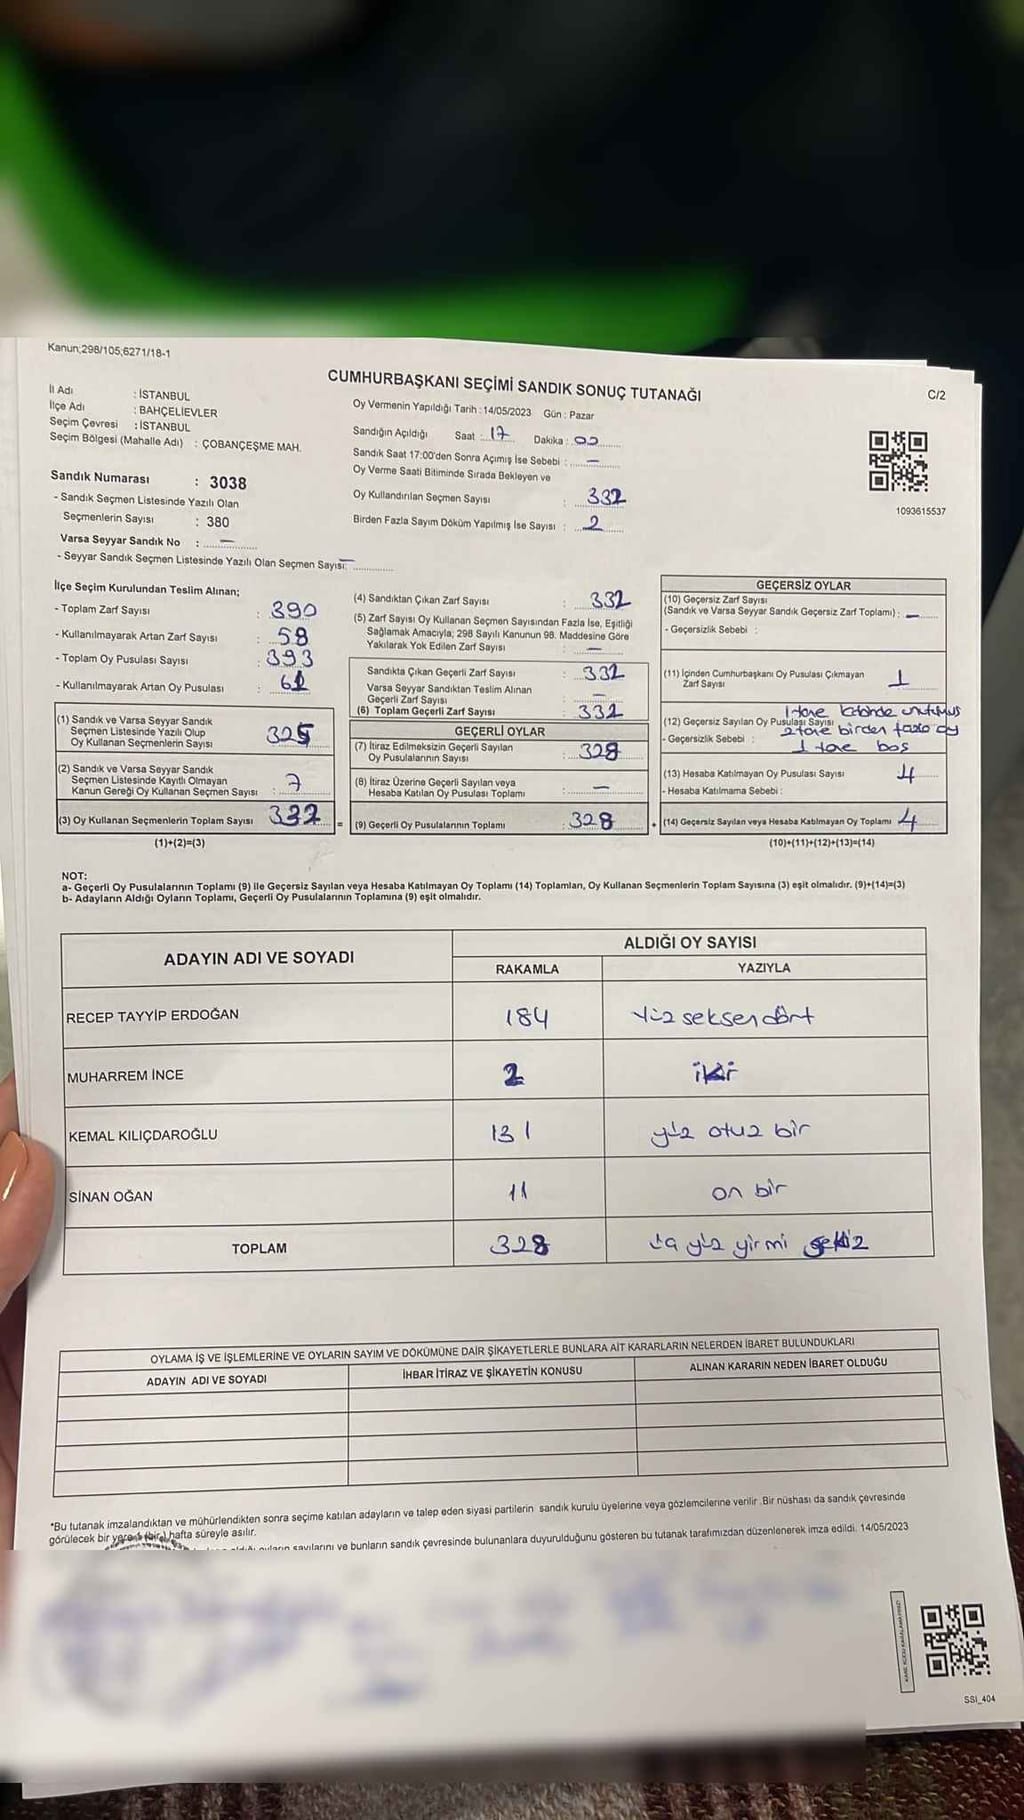 Kanun;298/105;6271/18-1
CUMHURBAŞKANI SEÇİMİ SANDIK SONUÇ TUTANAĞI
C/2
İl Adı : İSTANBUL
İlçe Adı : BAHÇELİEVLER
Seçim Çevresi : İSTANBUL
Seçim Bölgesi (Mahalle Adı) : ÇOBANÇEŞME MAH.
Sandık Numarası : 3038
- Sandık Seçmen Listesinde Yazılı Olan
Seçmenlerin Sayısı : 380
Varsa Seyyar Sandık No : –
- Seyyar Sandık Seçmen Listesinde Yazılı Olan Seçmen Sayısı: –
Oy Vermenin Yapıldığı Tarih : 14/05/2023 Gün : Pazar
Sandığın Açıldığı Saat : 17 Dakika : 00
Sandık Saat 17:00'den Sonra Açımış İse Sebebi : –
Oy Verme Saati Bitiminde Sırada Bekleyen ve
Oy Kullandırılan Seçmen Sayısı : 332
Birden Fazla Sayım Döküm Yapılmış İse Sayısı : 2
1093615537
İlçe Seçim Kurulundan Teslim Alınan;
- Toplam Zarf Sayısı : 390
- Kullanılmayarak Artan Zarf Sayısı : 58
- Toplam Oy Pusulası Sayısı : 393
- Kullanılmayarak Artan Oy Pusulası : 61
(1) Sandık ve Varsa Seyyar Sandık
Seçmen Listesinde Yazılı Olup
Oy Kullanan Seçmenlerin Sayısı 325
(2) Sandık ve Varsa Seyyar Sandık
Seçmen Listesinde Kayıtlı Olmayan
Kanun Gereği Oy Kullanan Seçmen Sayısı : 7
(3) Oy Kullanan Seçmenlerin Toplam Sayısı 332
(1)+(2)=(3)
(4) Sandıktan Çıkan Zarf Sayısı : 332
(5) Zarf Sayısı Oy Kullanan Seçmen Sayısından Fazla İse, Eşitliği
Sağlamak Amacıyla; 298 Sayılı Kanunun 98. Maddesine Göre
Yakılarak Yok Edilen Zarf Sayısı : –
Sandıkta Çıkan Geçerli Zarf Sayısı : 332
Varsa Seyyar Sandıktan Teslim Alınan
Geçerli Zarf Sayısı : –
(6) Toplam Geçerli Zarf Sayısı : 332
GEÇERLİ OYLAR
(7) İtiraz Edilmeksizin Geçerli Sayılan
Oy Pusulalarının Sayısı : 328
(8) İtiraz Üzerine Geçerli Sayılan veya
Hesaba Katılan Oy Pusulası Toplamı : –
= (9) Geçerli Oy Pusulalarının Toplamı : 328
GEÇERSİZ OYLAR
(10) Geçersiz Zarf Sayısı
(Sandık ve Varsa Seyyar Sandık Geçersiz Zarf Toplamı) : –
- Geçersizlik Sebebi :
(11) İçinden Cumhurbaşkanı Oy Pusulası Çıkmayan
Zarf Sayısı 1
1 tane kabinde unutulmuş
(12) Geçersiz Sayılan Oy Pusulası Sayısı
2 tane birden fazla oy
- Geçersizlik Sebebi : 1 tane boş
(13) Hesaba Katılmayan Oy Pusulası Sayısı 4
- Hesaba Katılmama Sebebi :
+ (14) Geçersiz Sayılan veya Hesaba Katılmayan Oy Toplamı 4
(10)+(11)+(12)+(13)=(14)
NOT:
a- Geçerli Oy Pusulalarının Toplamı (9) ile Geçersiz Sayılan veya Hesaba Katılmayan Oy Toplamı (14) Toplamları, Oy Kullanan Seçmenlerin Toplam Sayısına (3) eşit olmalıdır. (9)+(14)=(3)
b- Adayların Aldığı Oyların Toplamı, Geçerli Oy Pusulalarının Toplamına (9) eşit olmalıdır.
ADAYIN ADI VE SOYADI ALDIĞI OY SAYISI
RAKAMLA YAZIYLA
RECEP TAYYİP ERDOĞAN 184 Yüz seksen dört
MUHARREM İNCE 2 iki
KEMAL KILIÇDAROĞLU 131 yüz otuz bir
SİNAN OĞAN 11 on bir
TOPLAM 328 yüz yirmi sekiz
OYLAMA İŞ VE İŞLEMLERİNE VE OYLARIN SAYIM VE DÖKÜMÜNE DAİR ŞİKAYETLERLE BUNLARA AİT KARARLARIN NELERDEN İBARET BULUNDUKLARI
ADAYIN ADI VE SOYADI İHBAR İTİRAZ VE ŞİKAYETİN KONUSU ALINAN KARARIN NEDEN İBARET OLDUĞU
*Bu tutanak imzalandıktan ve mühürlendikten sonra seçime katılan adayların ve talep eden siyasi partilerin sandık kurulu üyelerine veya gözlemcilerine verilir .Bir nüshası da sandık çevresinde
görülecek bir yere 1 (bir) hafta süreyle asılır.
sayılarını ve bunların sandık çevresinde bulunanlara duyurulduğunu gösteren bu tutanak tarafımızdan düzenlenerek imza edildi. 14/05/2023
SSI_404